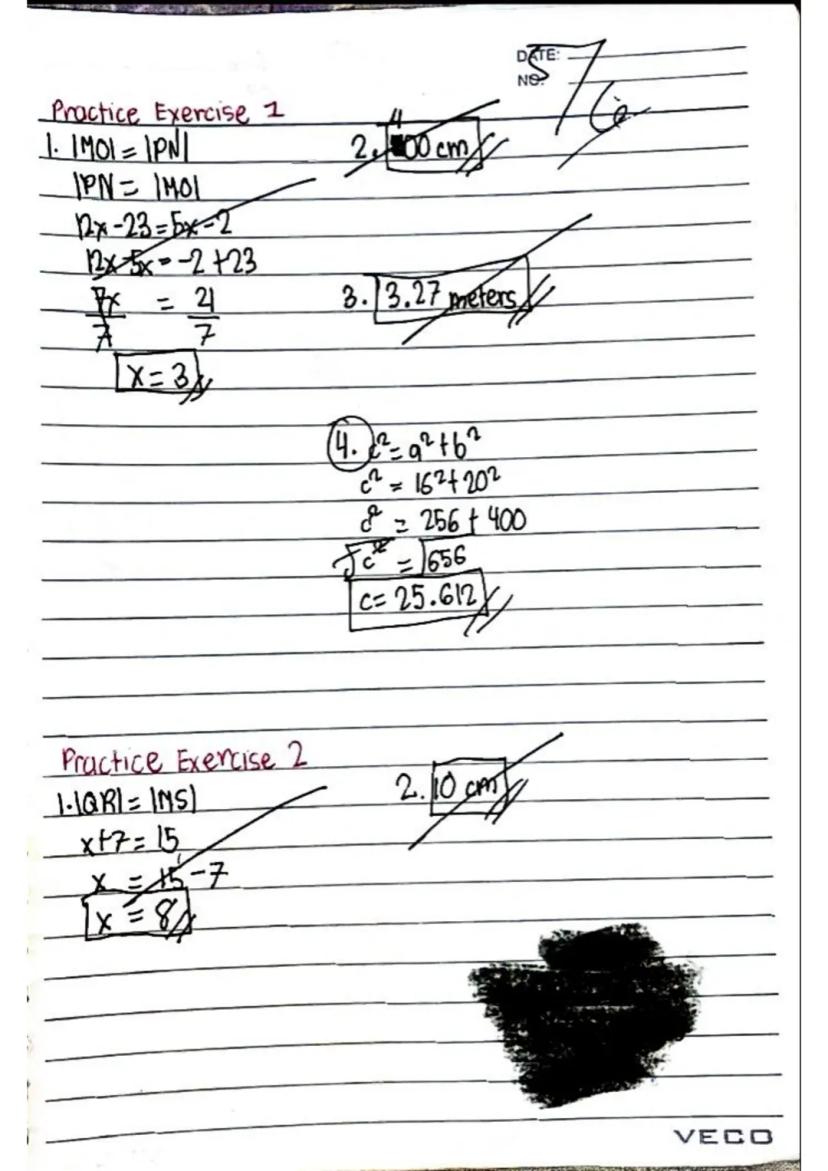 DATE:
NO.
5/6
Practice Exercise 1
1. |MO| = |PN|
|PN = |MO|
12x-23=5x-2
12x-5x=-2+23
7x = 21
7 7
x=3
2. 400 cm
3. 13.27 meters
4. c²=a²+b²
c² = 16²+20²
c² = 256 + 400
√c² = √656
c= 25.612
Practice Exercise 2
1. |QR| = |NS|
x+7=15
x = 15-7
x = 8
2. 10 cm
VECO